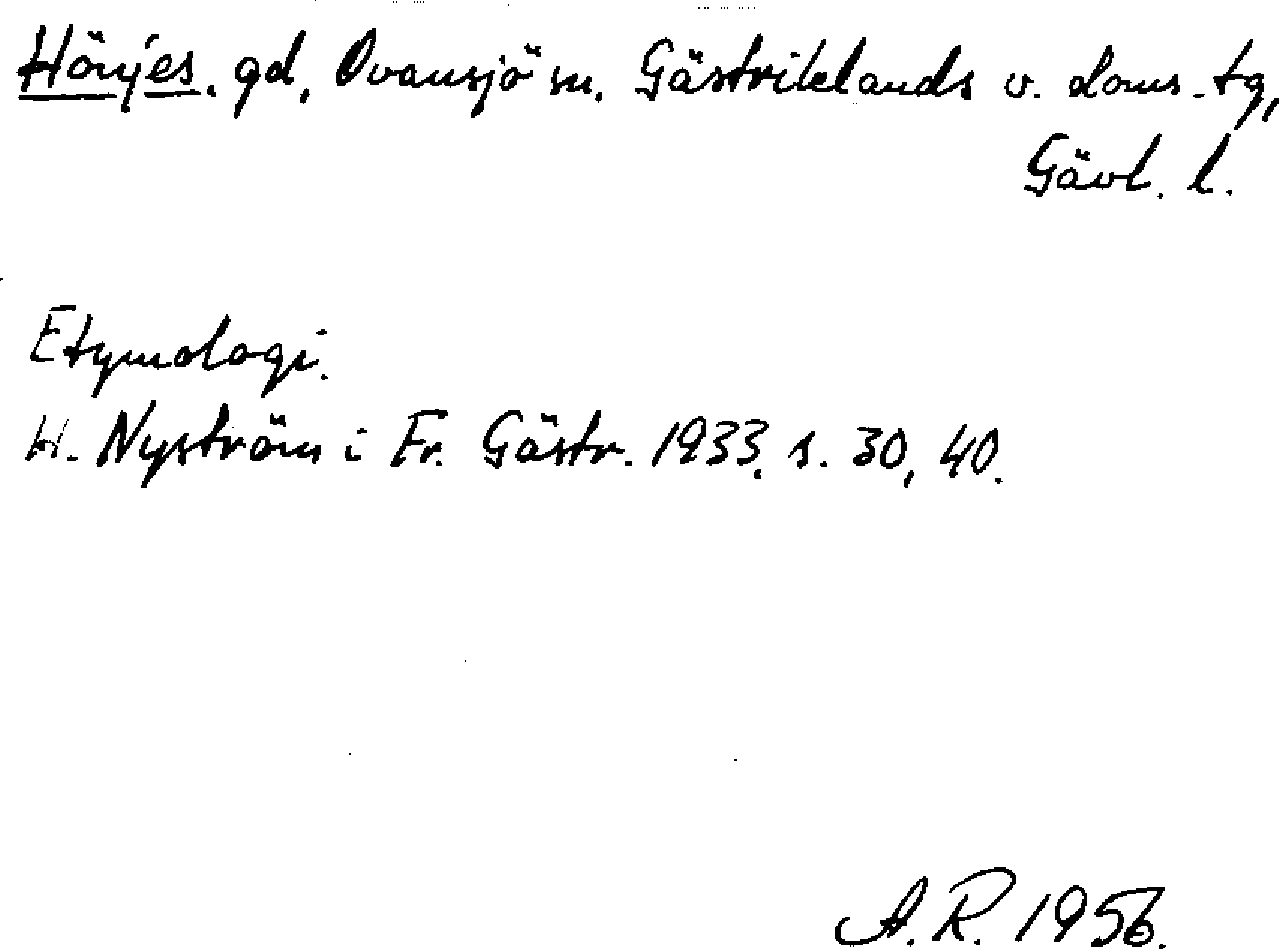 Hönjes. gd, Ovansjö sn. Gästriklands v. doms.-tg,
Gävl. l.
Etymologi.
H. Nyström i Fr. Gästr. 1933. s. 30, 40.
A.R. 1956.